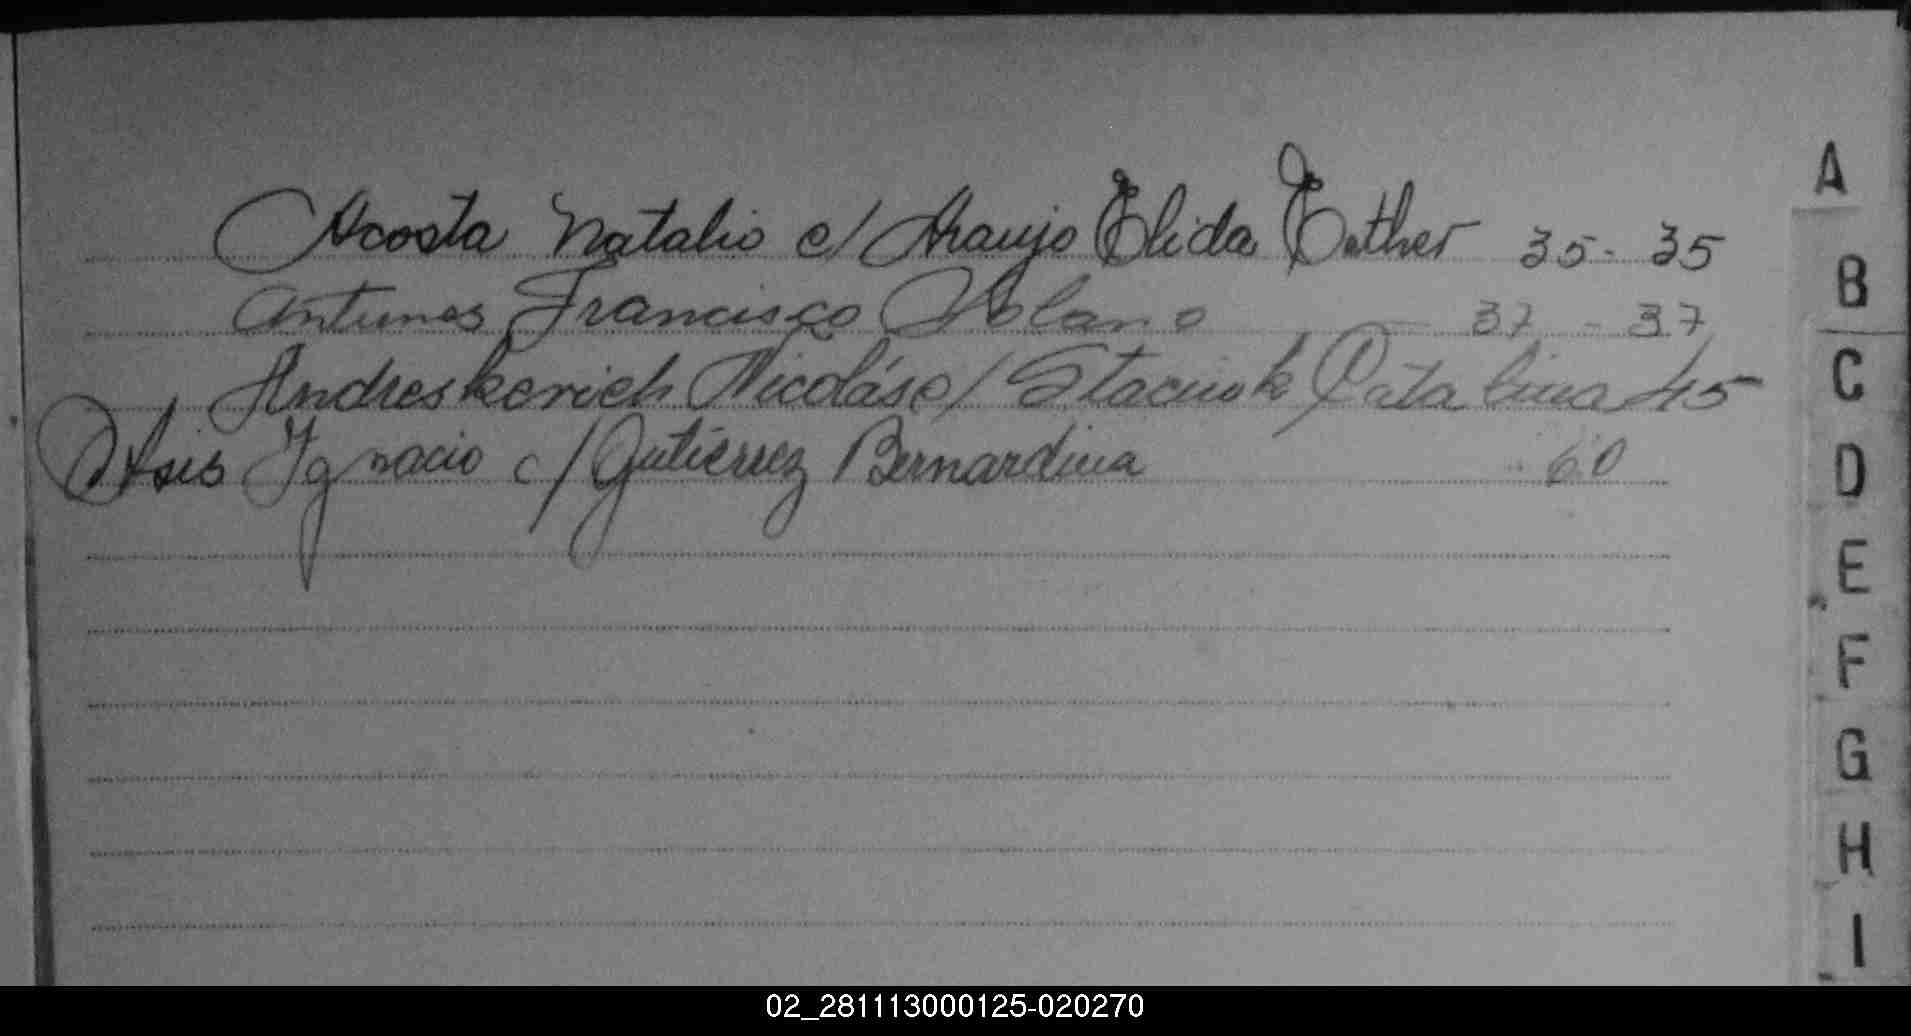 Acosta Natalio c/ Araujo Elida Esther 35 - 35
Antunes Francisco Solano 37 - 37
Andreskevich Nicolás c/ Staciuk Catalina 45
Asis Ignacio c/ Gutiérrez Bernardina 60
A
B
C
D
E
F
G
H
I
02_281113000125-020270